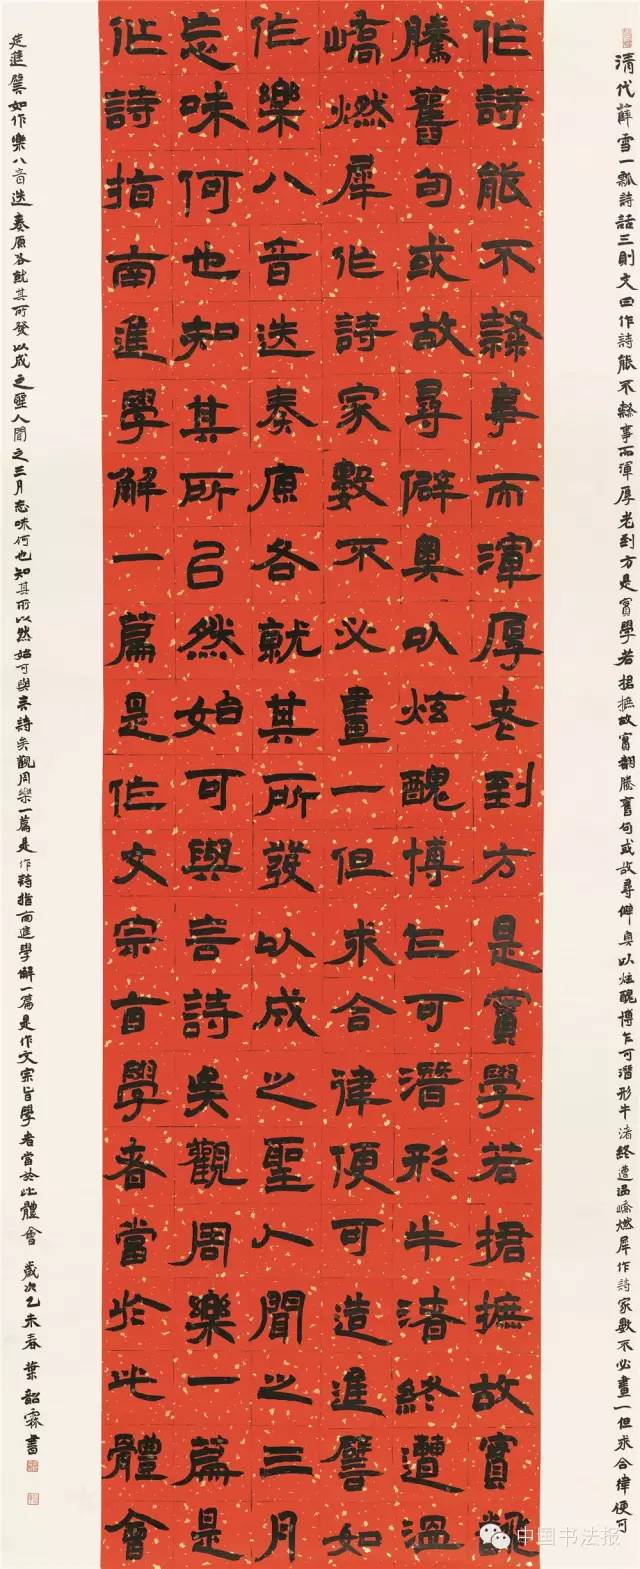 清代薛雪一瓢詩話三則文曰作詩能不隸事而渾厚老到方是實學若捃摭故實翻騰舊句或故尋僻奧以炫醜博乍可潛形牛渚終遭溫嶠燃犀作詩家數不必畫一但求合律便可
作詩能不隸事而渾厚老到方是實學若捃摭故實翻
騰舊句或故尋僻奧以炫醜博乍可潛形牛渚終遭溫
嶠燃犀作詩家數不必畫一但求合律便可造進譬如
作樂八音迭奏原各就其所發以成之聖人聞之三月
忘味何也知其所以然始可與言詩矣觀周樂一篇是
作詩指南進學解一篇是作文宗旨學者當於此體會
造進譬如作樂八音迭奏原各就其所發以成之聖人聞之三月忘味何也知其所以然始可與言詩矣觀周樂一篇是作詩指南進學解一篇是作文宗旨學者當於此體會 歲次乙未春 葉韶霖書
中国书法报